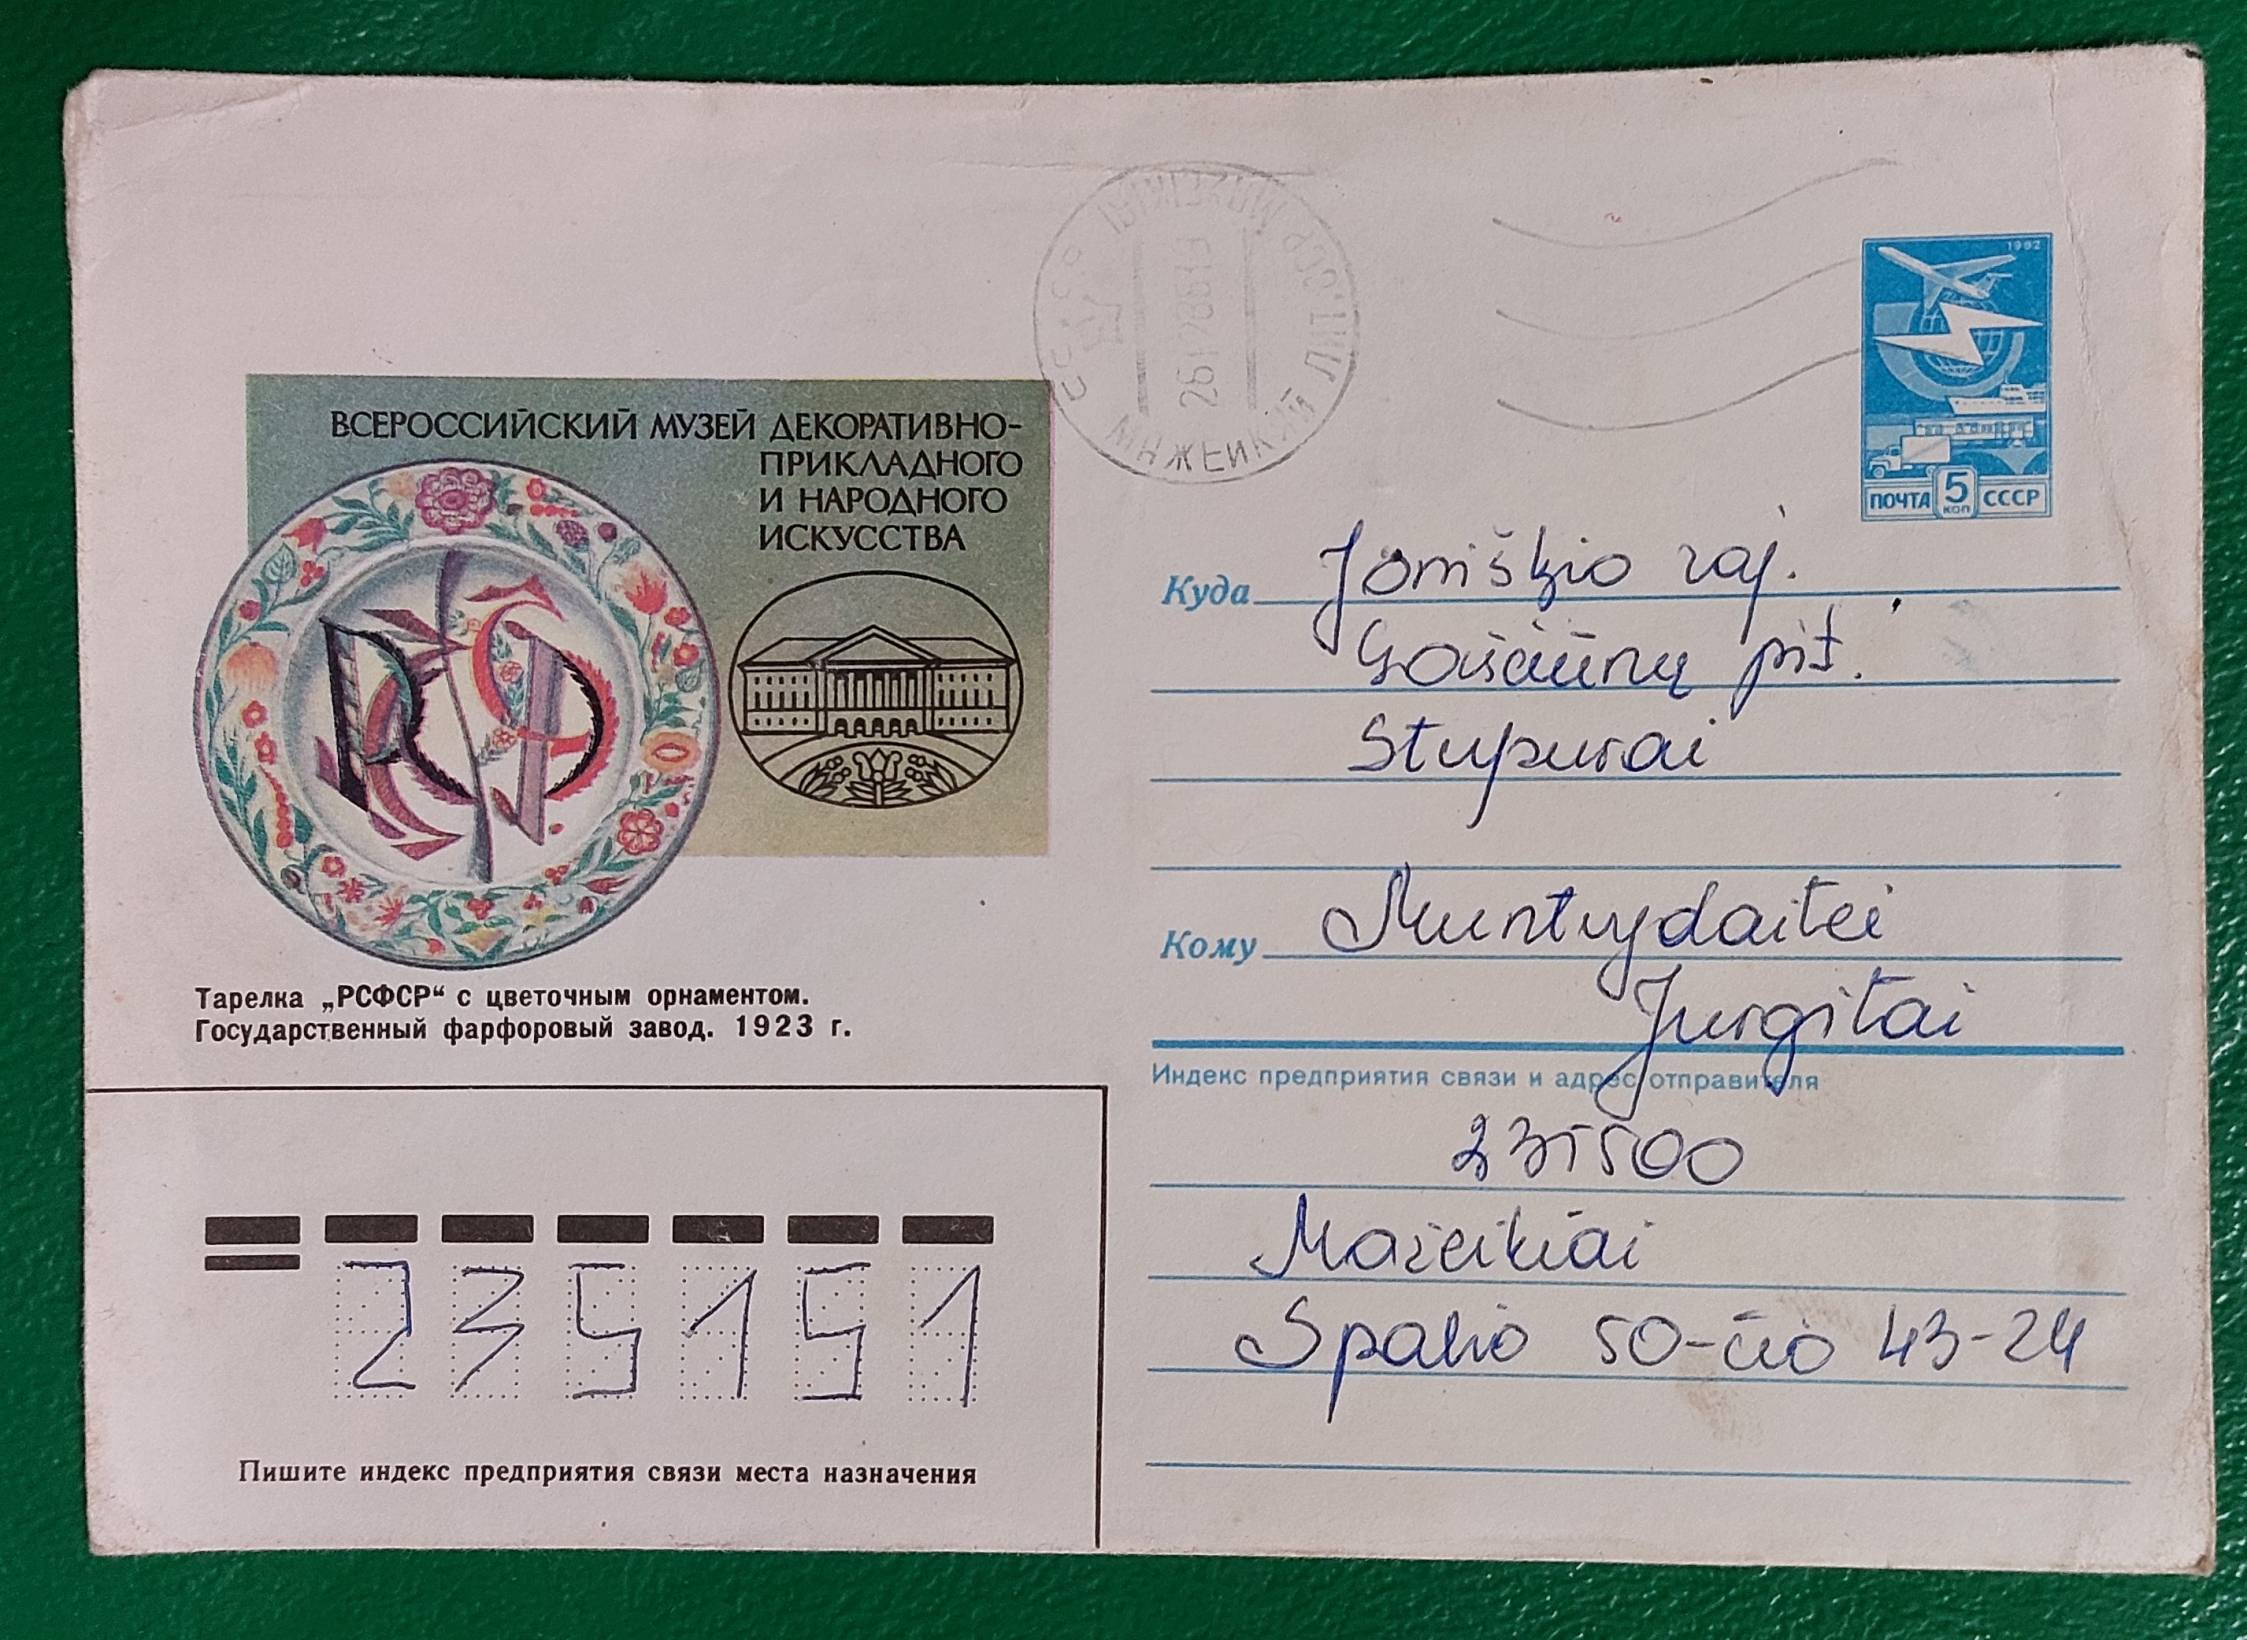 ВСЕРОССИЙСКИЙ МУЗЕЙ ДЕКОРАТИВНО-
ПРИКЛАДНОГО
И НАРОДНОГО
ИСКУССТВА
Тарелка „РСФСР“ с цветочным орнаментом.
Государственный фарфоровый завод. 1923 г.
СССР МАЖЕЙКЯЙ ЛИТ.ССР MAŽEIKIAI
1982
ПОЧТА 5 КОП СССР
Куда Joniškio raj.
Gaščiūnų pšt.
Stupurai
Кому Muntvydaitei
Jurgitai
Индекс предприятия связи и адрес отправителя
235500
Mažeikiai
Spalio 50-čio 43-24
235151
Пишите индекс предприятия связи места назначения